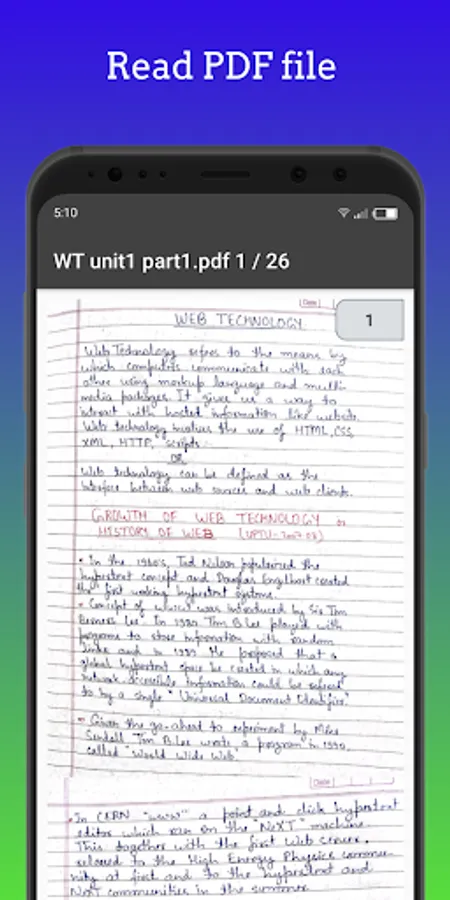 Read PDF file
5:10
WT unit1 part1.pdf 1 / 26
Date
1
WEB TECHNOLOGY
Web Technology refers to the means by
which computers communicate with each
other using markup language and multi
media packages. It gives us a way to
interact with hosted information like website.
Web technology involves the use of HTML, CSS,
XML, HTTP, scripts.
OR
Web technology can be defined as the
Interface between web sources and web clients.
GROWTH OF WEB TECHNOLOGY or
HISTORY OF WEB (UPTU-2007-08)
• In the 1960's, Ted Nelson popularized the
hypertext concept and Douglas Engelbart created
the first working hypertext systems.
• Concept of www was introduced by Sir Tim
Berners Lee. In 1980 Tim B.Lee played with
programs to store information with random
links and in 1989. He proposed that a
global hypertext space be created in which any
network accessible information could be refered
to by a single "Universal Document Identifier".
- Given the go-ahead to experiment by Mike
Sendall Tim B.Lee wrote a program in 1990,
called "World Wide Web".
Date
• In CERN "www" a point and click hypertext
editor which ran on the "NeXT" machine.
This together with the first Web server,
released to the High Energy Physics commu-
nity at first and to the hypertext and
NeXT communities in the summer